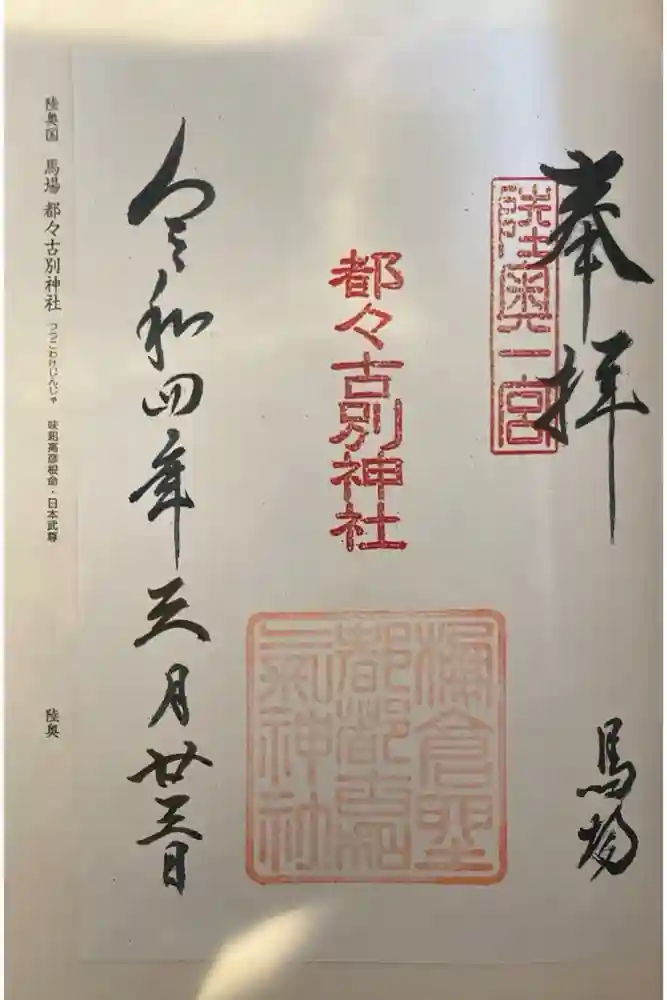 奉拝
陸奥一宮
馬場
都々古別神社
令和四年三月廿三日
陸奥国 馬場 都々古別神社 つつこわけじんじゃ 味耜高彦根命・日本武尊 陸奥